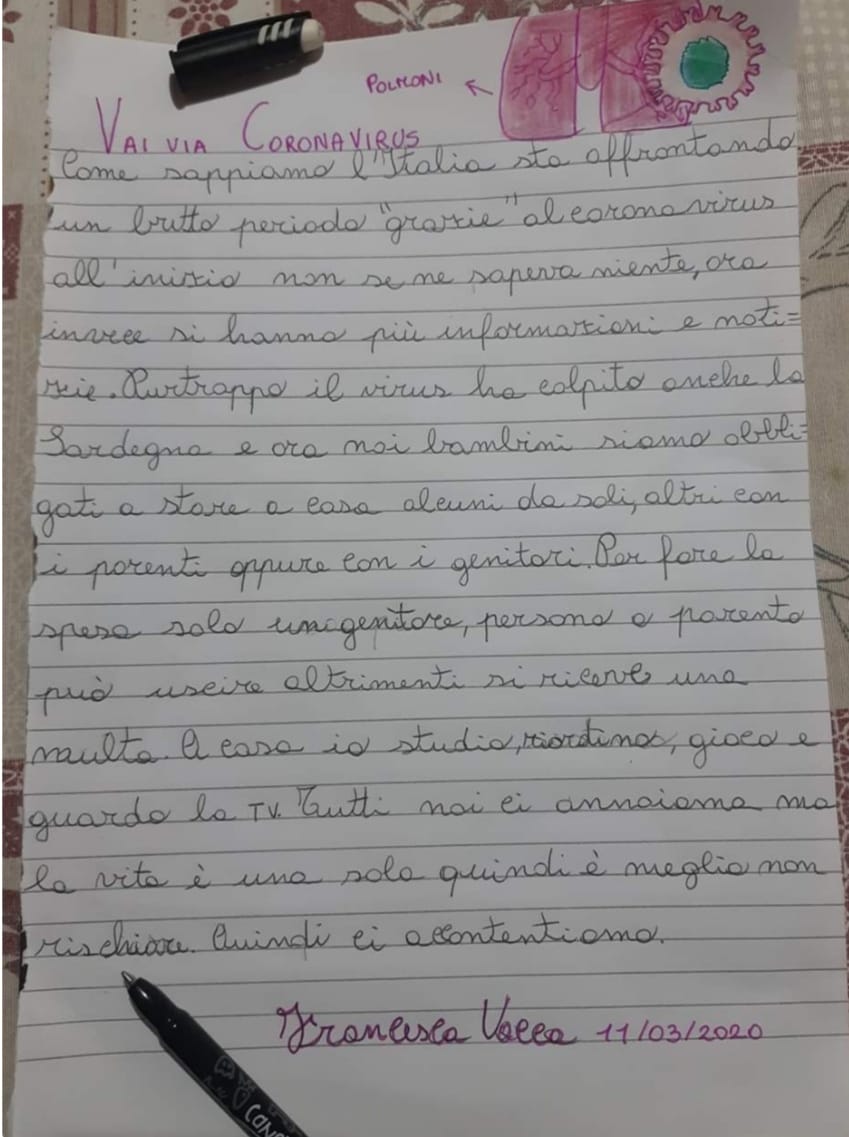 POLMONI
VAI VIA CORONAVIRUS
Come sappiamo l'Italia sta affrontando
un brutto periodo "grazie" al coronavirus
all'inizio non se ne sapeva niente, ora
invece si hanno più informazioni e noti=
zie. Purtroppo il virus ha colpito anche la
Sardegna e ora noi bambini siamo obbli=
gati a stare a casa alcuni da soli, altri con
i parenti oppure con i genitori. Per fare la
spesa solo un genitore, persona o parente
può uscire altrimenti si riceve una
multa. A casa io studio, riordino, gioco e
guardo la TV. Tutti noi ci annoiamo ma
la vita è una sola quindi è meglio non
rischiare. Quindi ci accontentiamo.
Francesca Vacca 11/03/2020